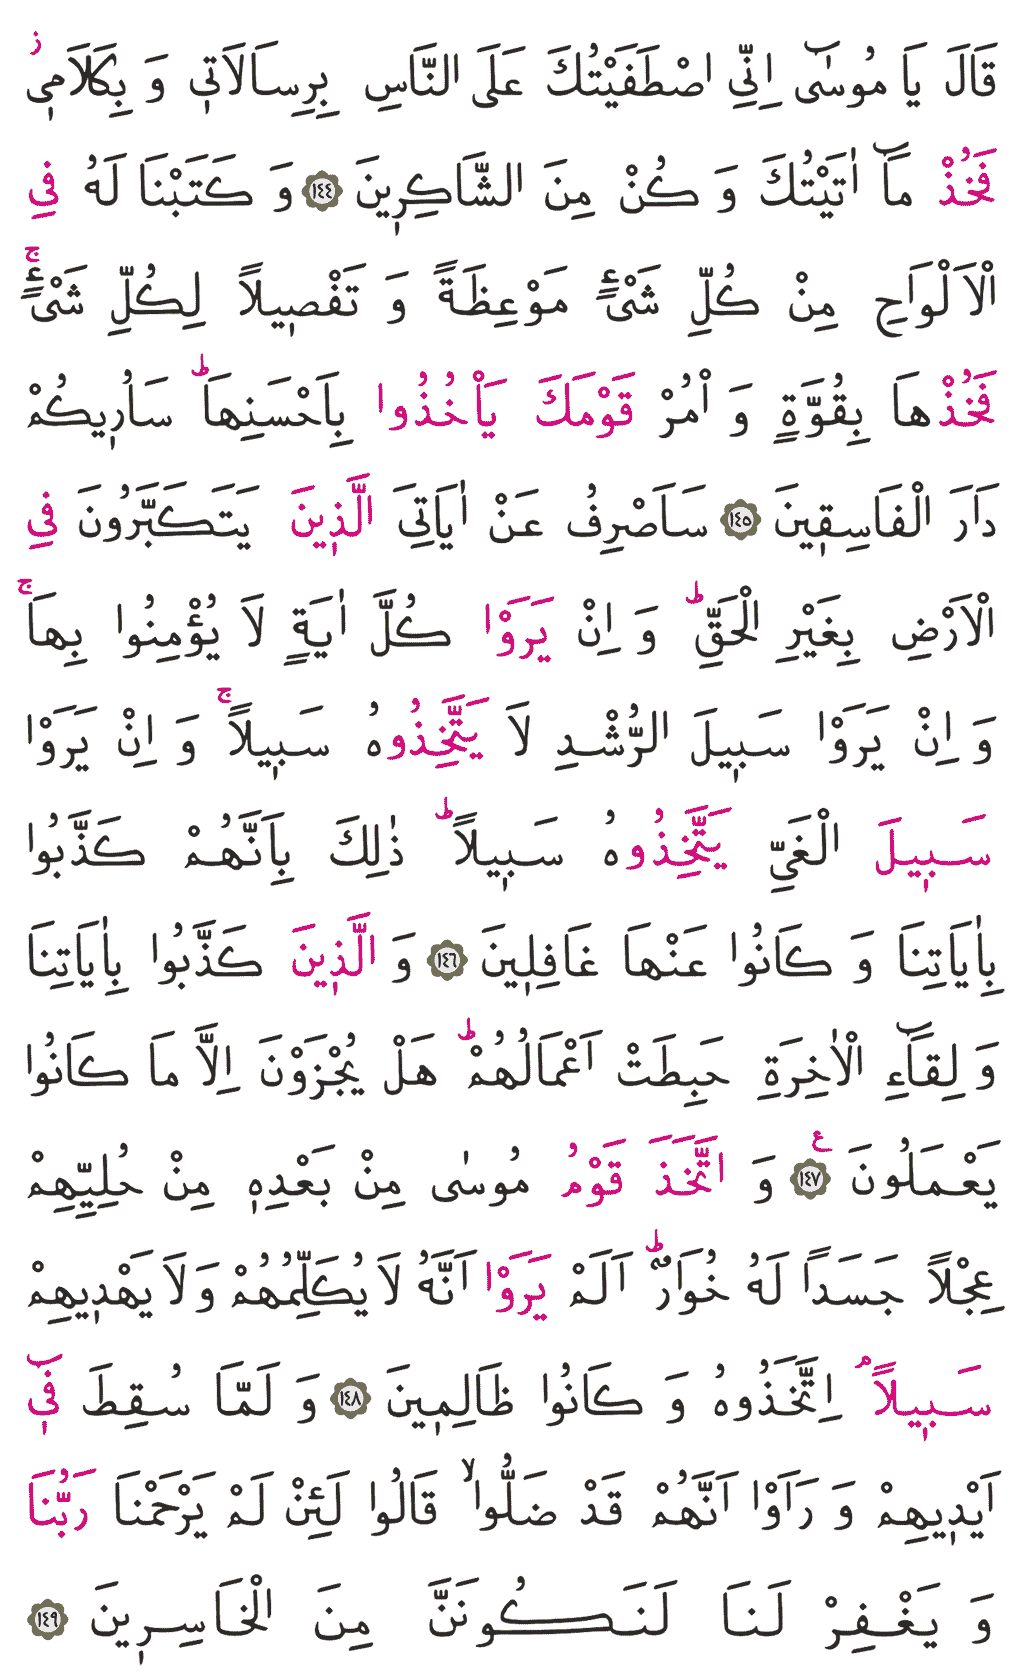 قَالَ يَا مُوسٰٓى اِنِّي اصْطَفَيْتُكَ عَلَى النَّاسِ بِرِسَالَاتٖي وَ بِكَلَامٖيۘ ز
فَخُذْ مَٓا اٰتَيْتُكَ وَ كُنْ مِنَ الشَّاكِرٖينَ ﴿١٤٤﴾ وَ كَتَبْنَا لَهُ فِي
الْاَلْوَاحِ مِنْ كُلِّ شَيْءٍ مَوْعِظَةً وَ تَفْصٖيلاً لِكُلِّ شَيْءٍۚ
فَخُذْهَا بِقُوَّةٍ وَ اْمُرْ قَوْمَكَ يَاْخُذُوا بِاَحْسَنِهَاؕ سَاُرٖيكُمْ
دَارَ الْفَاسِقٖينَ ﴿١٤٥﴾ سَاَصْرِفُ عَنْ اٰيَاتِيَ الَّذٖينَ يَتَكَبَّرُونَ فِي
الْاَرْضِ بِغَيْرِ الْحَقِّؕ وَ اِنْ يَرَوْا كُلَّ اٰيَةٍ لَا يُؤْمِنُوا بِهَاۚ
وَ اِنْ يَرَوْا سَبٖيلَ الرُّشْدِ لَا يَتَّخِذُوهُ سَبٖيلاًۚ وَ اِنْ يَرَوْا
سَبٖيلَ الْغَيِّ يَتَّخِذُوهُ سَبٖيلاًؕ ذٰلِكَ بِاَنَّهُمْ كَذَّبُوا
بِاٰيَاتِنَا وَ كَانُوا عَنْهَا غَافِلٖينَ ﴿١٤٦﴾ وَ الَّذٖينَ كَذَّبُوا بِاٰيَاتِنَا
وَ لِقَٓاءِ الْاٰخِرَةِ حَبِطَتْ اَعْمَالُهُمْؕ هَلْ يُجْزَوْنَ اِلَّا مَا كَانُوا
يَعْمَلُونَ ﴿١٤٧﴾ ع وَ اتَّخَذَ قَوْمُ مُوسٰى مِنْ بَعْدِهٖ مِنْ حُلِيِّهِمْ
عِجْلاً جَسَداً لَهُ خُوَارٌؕ اَلَمْ يَرَوْا اَنَّهُ لَا يُكَلِّمُهُمْ وَ لَا يَهْدٖيهِمْ
سَبٖيلاًۢ اِتَّخَذُوهُ وَ كَانُوا ظَالِمٖينَ ﴿١٤٨﴾ وَ لَمَّا سُقِطَ فٖٓي
اَيْدٖيهِمْ وَ رَاَوْا اَنَّهُمْ قَدْ ضَلُّواۙ قَالُوا لَئِنْ لَمْ يَرْحَمْنَا رَبُّنَا
وَ يَغْفِرْ لَنَا لَنَكُونَنَّ مِنَ الْخَاسِرٖينَ ﴿١٤٩﴾